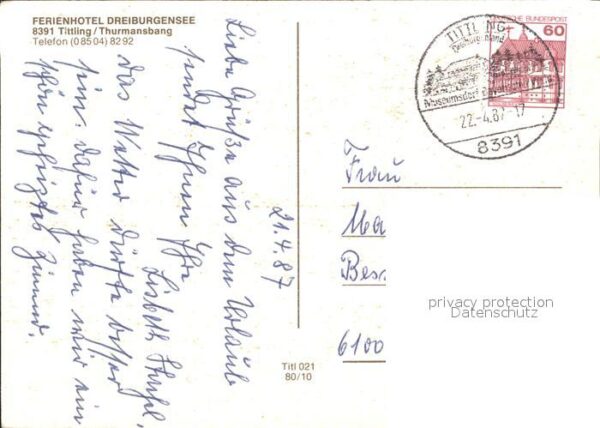 FERIENHOTEL DREIBURGENSEE
8391 Tittling / Thurmansbang
Telefon (0 85 04) 82 92
21.4.87
Liebe Grüße aus dem Urlaub
sendet Ihnen Ihre
Lisbeth
das Wetter dürfte besser
sein, dafür haben wir ein
schön geheiztes Zimmer.
Titl 021
80/10
TITTLING
Dreiburgenland
Museumsdorf
22.-4.87-17
8391
DEUTSCHE BUNDESPOST
60
Frau
Ma
Bes
6100
privacy protection
Datenschutz